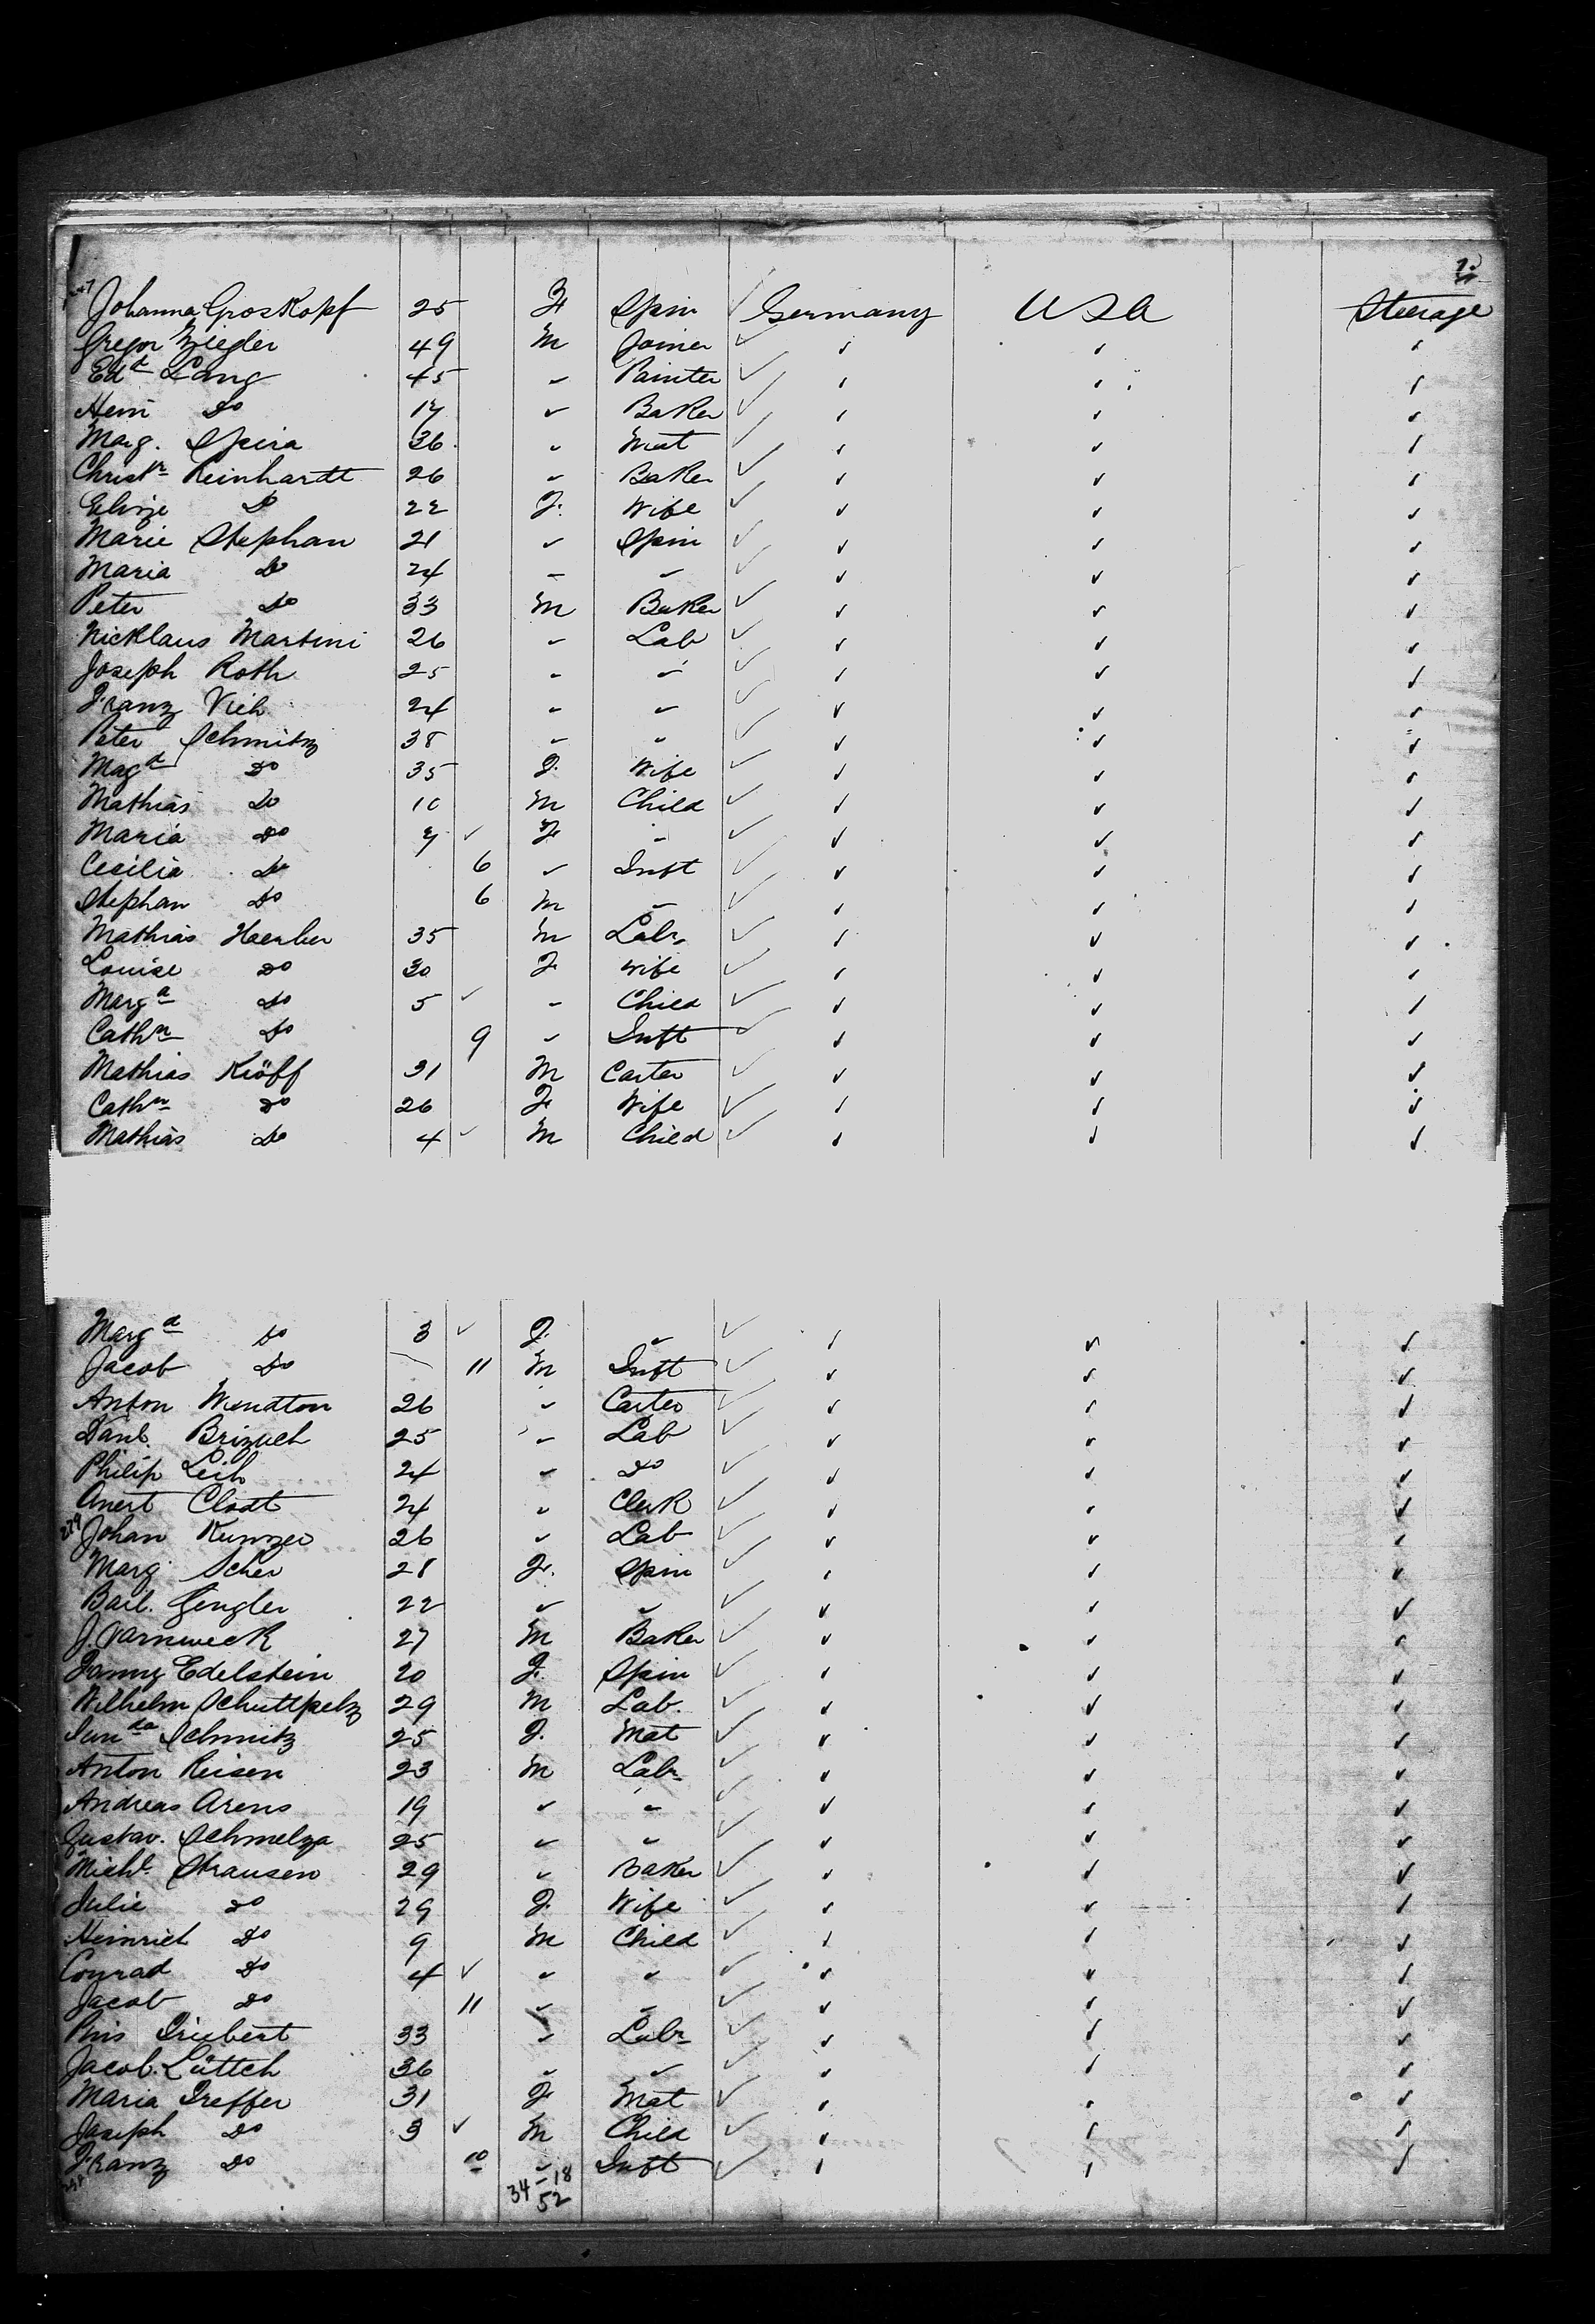 7.
Johanna Groskopf 25 F Spin Germany USA Steerage
Gregor Ziegler 49 M Joiner
Edd Lang 45 " Painter
Heni Do 17 " Baker
Marg. Speira 36 " Mat
Christn Reinhardt 26 " Baker
Elise Do 22 F. Wife
Marie Stephan 21 " Spin
Maria Do 24 " "
Peter Do 33 M Baker
Nicklaus Martini 26 " Lab
Joseph Roth 25 " "
Franz Vieh 24 " "
Peter Schmitz 38 " "
Magd Do 35 F. Wife
Mathias Do 10 M Child
Maria Do 7 F "
Cecilia Do 6 " Inft
Stephan Do 6 M "
Mathias Haerber 35 M Labr
Louise Do 30 F Wife
Marga Do 5 " Child
Cathn Do 9 " Inft
Mathias Kröff 31 M Carter
Cathn Do 26 F Wife
Mathias Do 4 M Child
Marga Do 3 F. "
Jacob Do 11 M Inft
Anton Wendton 26 " Carter
Danl. Brizuch 25 " Lab
Philip Leih 24 " Do
Anert Clodt 24 " Clerk
229 Johan Kunzer 26 " Lab
Marg Scher 28 F. Spin
Barb. Gengler 22 " "
J. Varnweck 27 M Baker
Fanny Edelstein 20 F. Spin
Wilhelm Schuttpelz 29 M Lab.
Schmitz 25 F. Mat
Anton Reisen 23 M Labr
Andreas Arens 19 " "
Gustav. Schmelza 25 " "
Michl. Strausen 29 " Baker
Julie Do 29 F. Wife
Heinrich Do 9 M Child
Conrad Do 4 " "
Jacob Do 11 " "
Griebert 33 " Labr
Jacob. Lüttch 36 " "
Maria Greffer 31 F Mat
Joseph Do 3 M Child
Franz Do 10 " Inft
34-18
52